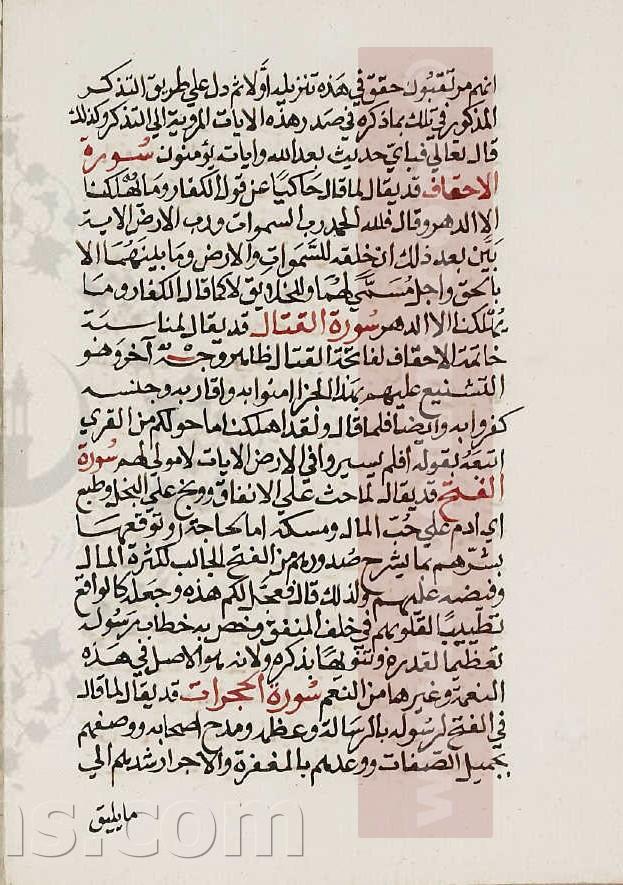 انهم مرتقبون حقق في هذه تنزيله أولا ثم دل علي طريق التذكر
المذكور في تلك بما ذكره في صدر هذه الايات المروية الي التذكر وكذلك
قال تعالي فباي حديث بعد الله واياته يؤمنون سورة
الاحقاف قد يقال لما قال حاكيا عن قول الكفار وما يهلكنا
الا الدهر وقال فلله الحمد رب السموات ورب الارض الاية
بين بعد ذلك ان خلقه للسموات والارض وما بينهما الا
بالحق واجل مسمي لهما وللخلايق لا كما قال الكفار وما
يهلكنا الا الدهر سورة القتال قد يقال لمناسبة
خاتمة الاحقاف لفاتحة القتال ظاهر وجه آخر وهو
التشنيع عليهم بهذا الجزا امنوا به واقاربه وجنسه
كفروا به وايضا فلما قال ولقد اهلكنا ما حولكم من القري
اتبعه بقوله أفلم يسيروا في الارض الايات لا مولي لهم سورة
الفتح قد يقال لما حث علي الانفاق ووبخ علي البخل وطبع
اي ادم علي حب المال ومسكه اما لحاجة أو توقعها
بشرهم بما يشرح صدورهم من الفتح الجالب لكثرة المال
وفيضه عليهم ولذلك قال فعجل لكم هذه وجعله كالواقع
تطييبا لقلوبهم في خلف المنفق وخص به خطاب رسوله
تعظيما لقدره وتنويها بذكره ولانه هو الاصل في هذه
النعمة وغيرها من النعم سورة الحجرات قد يقال لما قال
في الفتح لرسوله بالرسالة وعظمه ومدح اصحابه ووصفهم
بجميل الصفات ووعدهم بالمغفرة والاجر ارشدهم الي
ما يليق
ns.com